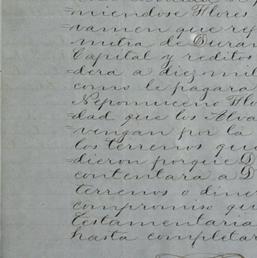 miendose Flores
vamen que rep
mitra de Duran
Capital y reditos
dera a diez mil
como le pagara
Nepomuceno Flo
dad que los Alva
vengan por la
los terrenos que
dieron porque D
contentara a D
terrenos o dine
compromiso qu
testamentaria
hasta completar